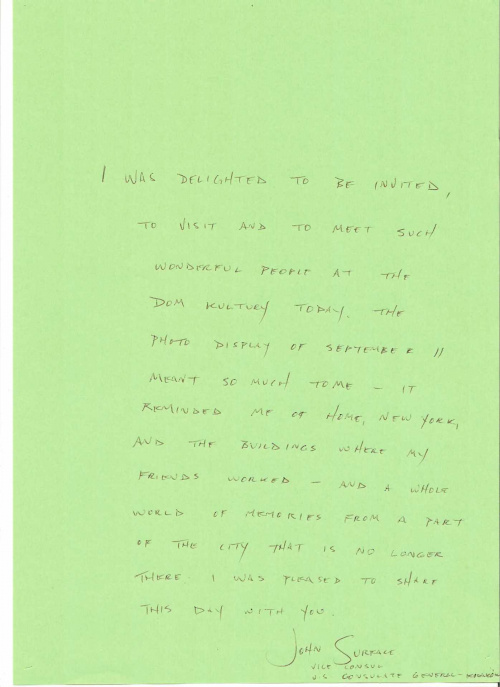 I WAS DELIGHTED TO BE INVITED,
TO VISIT AND TO MEET SUCH
WONDERFUL PEOPLE AT THE
DOM KULTURY TODAY. THE
PHOTO DISPLAY OF SEPTEMBER 11
MEANT SO MUCH TO ME – IT
REMINDED ME OF HOME, NEW YORK,
AND THE BUILDINGS WHERE MY
FRIENDS WORKED – AND A WHOLE
WORLD OF MEMORIES FROM A PART
OF THE CITY THAT IS NO LONGER
THERE. I WAS PLEASED TO SHARE
THIS DAY WITH YOU.
JOHN
VICE CONSUL
U.S. CONSULATE GENERAL –